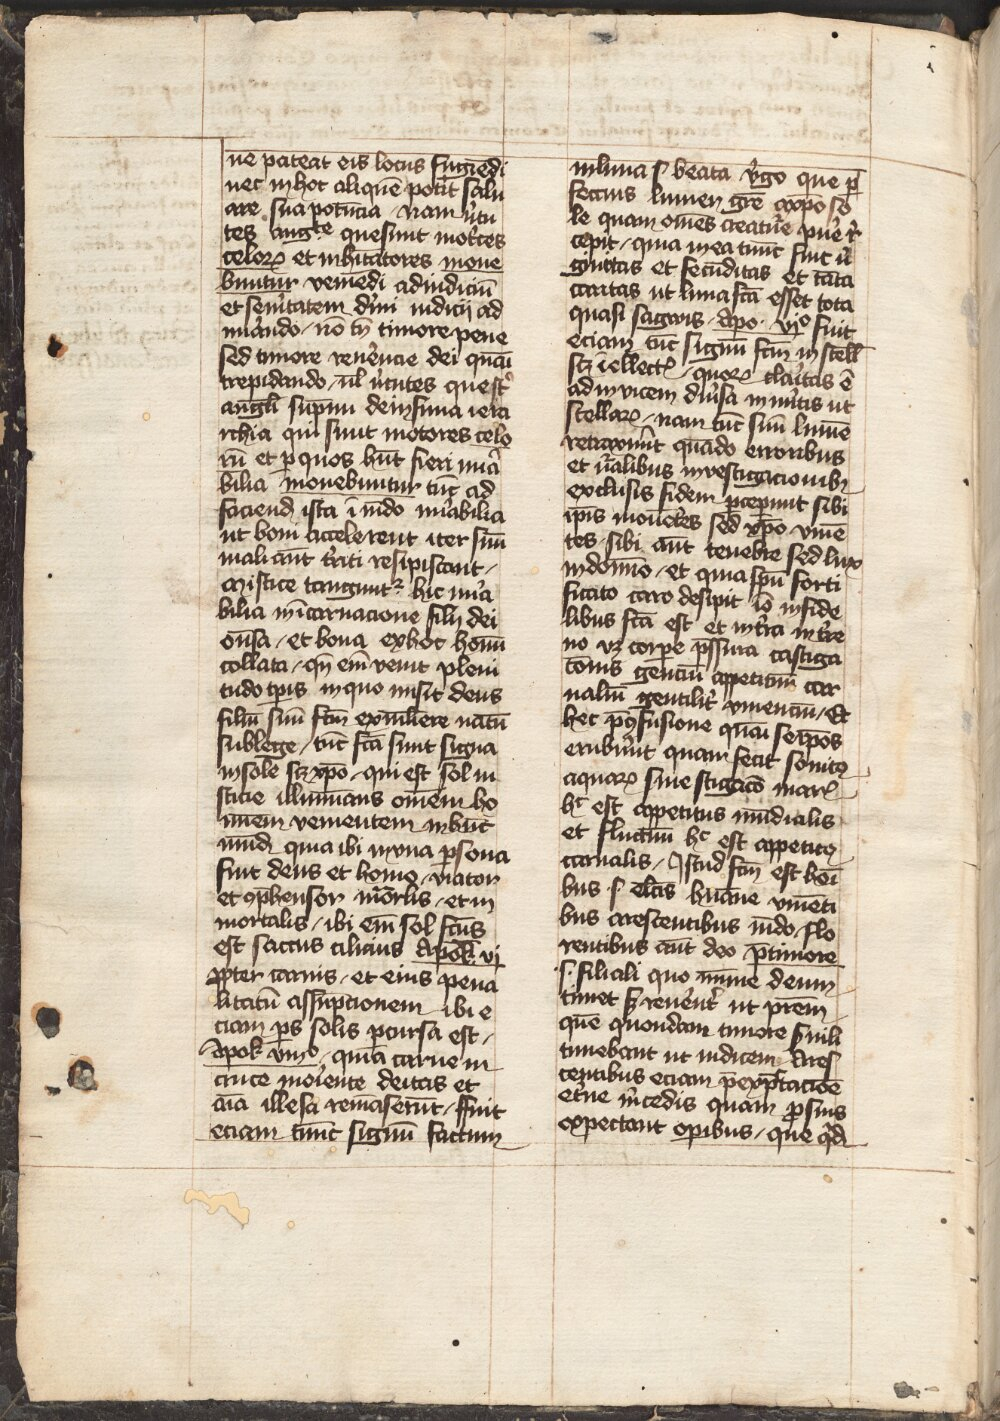 ne pateat eis locus fugiēdi
nec in hoc aliquē potit salu
are sua potūcia nam v̓tu
tes ang̅te que sunt motͬces
celoꝝ et inhitatores moue
buntur veniēdi ad iudiciū
et seuˀitatem dīni iudicij ad
mirādo / nō tm̄ timore pene
sed timore reuˀencie dei quasi
trepidando / ul̄ v̓tutes que sͭ
angl̄i supͥmi de infima iera
rchia qui sunt motores celo
rū et ꝑ quos hn̄t fieri mira
bilia mouebuntur tūc ad
faciend̄ ista ī mūdo mirabilia
ut boni accelerent iter suū
mali aūt tͬriti resipiscant /
Mistice tangunt᷑ hic mira
bilia in īcarnacione filij dei
ōnsa / et bona ex hoc hoīni
collata / qn̄ em̄ venit pleni
tudo tp̄is in quo misit deus
filiū suū fcm̄ ex muliere natū
sub lege / tūc fcā sunt signa
in sole sꝫ xp̄o / qui est sol iu
sticie illuminans omēm ho
minem venientem in hūc
mūdū quia ibi in vna ꝑsona
fuit deus et homo / viator
et ꝯp̄hensor inmortalis / et
mortalis / ibi em̄ sol fcūs
est saccus cilicius Apok̄ vi
ꝓpter carnis / et eius pena
litatū assūptionem ibi e
ciam ps̄ solis ꝑcussa est /
Apok̄ viij° / quia carne in
cruce moriente deitas et
aīa illesa remāserūt / ffuit
eciam tūnc signū factum
in luna .s. beata v̓go que ꝑ
feccius lumen gr̄e a xpo so
le quam om̄es creatͬe pure re
cepit / quia in ea tūnc fuit v̓
ginitas et fecūditas et tāta
caritas ut luna fcā esset tota
quasi sagwis / Apo · vj° fuit
eciam tūc signū fcm̄ in stell̄
sꝫ ītellectꝫ / quoꝝ claritas ē
ad invicem diuˀsa in v̓tutis ut
stellaꝝ / nam tūc suū lumē
retraxerūt quādo erroribus
et n̄ralibus investigacionibꝫ
exclusis fidem ꝑceperunt sibi
ip̄is morientes sed xp̄o viuē
tes / sibi aūt tenebre sed lux
in domīno / et quia spū forti
ficato caro desipit iō infide
libus fcā est et in terra in tͬre
no vꝫ corpe p̄ssura castiga
cōnis genciū appetitum car
nalium gentiliter viuenciū / Et
hec p̄ ꝯfusione quasi se ipos
erubuˀit quam fecit sonitꝫ
aquaꝝ siue stigacō marꝫ
hͨ est appetitus mūdialis
et fluctuū hͨ est appetitꝫ
carnalis / Istud fcm̄ est hoī
bus .s. el̄cīs hu͞ane viuēti
bus arescentibus mūdo / flo
rentibus aūt deo p̄ timore
.s. filiali quo nunc deum
timet sꝫ reuerēter ut prēm
quē quondam timore suˀili
timebant ut iudicem / Ares
centibus eciam p̄ expectacōe
eterne mˀcedis quam p̄ suis
expectant opibus / que qd̄